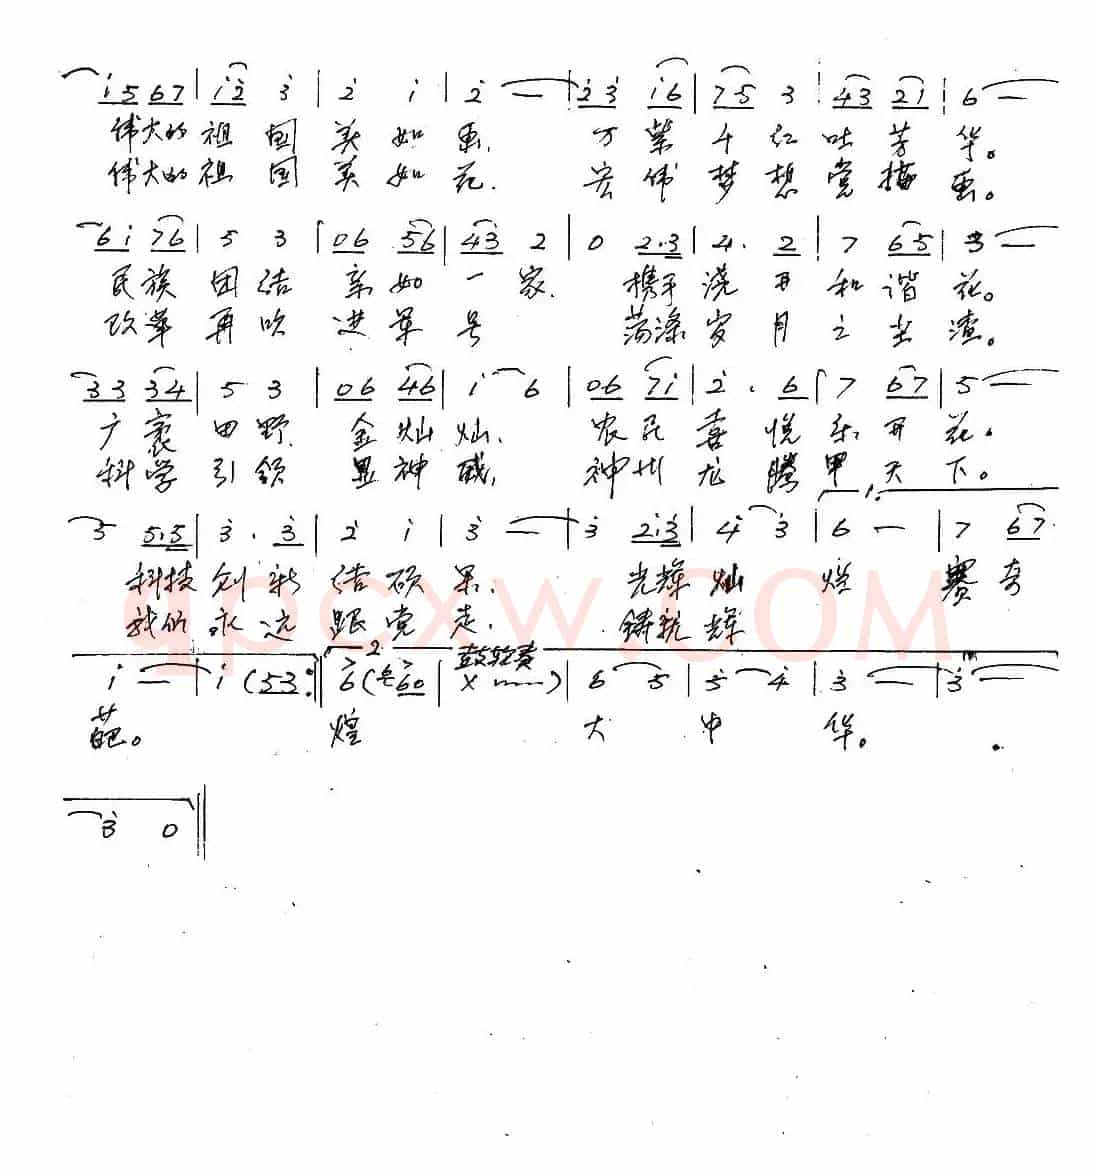 i 5 6 7 | i 2 3 | 2 i | 2 — | 2 3 i 6 | 7 5 3 | 4 3 2 1 | 6 —
伟大的 祖 国 美 如 画, 万 紫 千 红 吐 芳 华。
伟大的 祖 国 美 如 花. 宏 伟 梦 想 党 描 画。
6 i 7 6 | 5 3 | 0 6 5 6 | 4 3 2 | 0 2·3 | 4· 2 | 7 6 5 | 3 —
民 族 团 结 亲 如 一 家. 携手 浇 开 和 谐 花。
改 革 再 吹 进 军 号 荡涤 岁 月 之 尘 渣。
3 3 3 4 | 5 3 | 0 6 4 6 | i 6 | 0 6 7 i | 2· 6 | 7 6 7 | 5 —
广 袤 田 野 金 灿 灿. 农 民 喜 悦 乐 开 花.
科 学 引 领 显 神 威, 神 州 龙 腾 甲 天 下。
1.
5 5·5 | 3· 3 | 2 i | 3 — | 3 2·3 | 4 3 | 6 — | 7 6 7
科技 创 新 结 硕 果. 光 辉 灿 烂 赛 奇
我们 永 远 跟 党 走. 铸 就 辉
qpcxw.com
2 鼓轮奏
i — | i (5 3 :| 6 (6 6 0 | X ┈┈) | 6 5 | 5 4 | 3 — | 3 —
葩。 煌 大 中 华。
3 0 ||